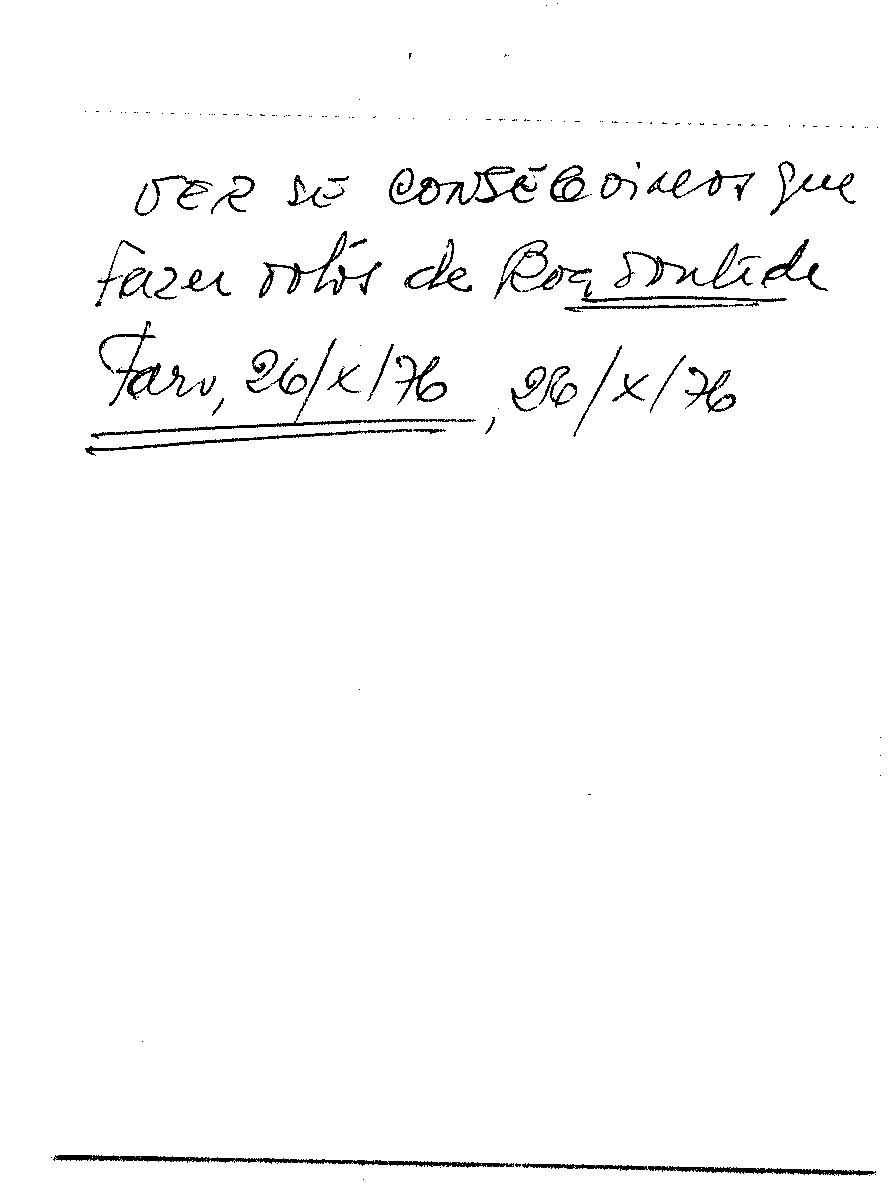 VER SE CONSEGUIMOS que
fazer votos de Boa vontade
Faro, 26/X/76, 26/X/76